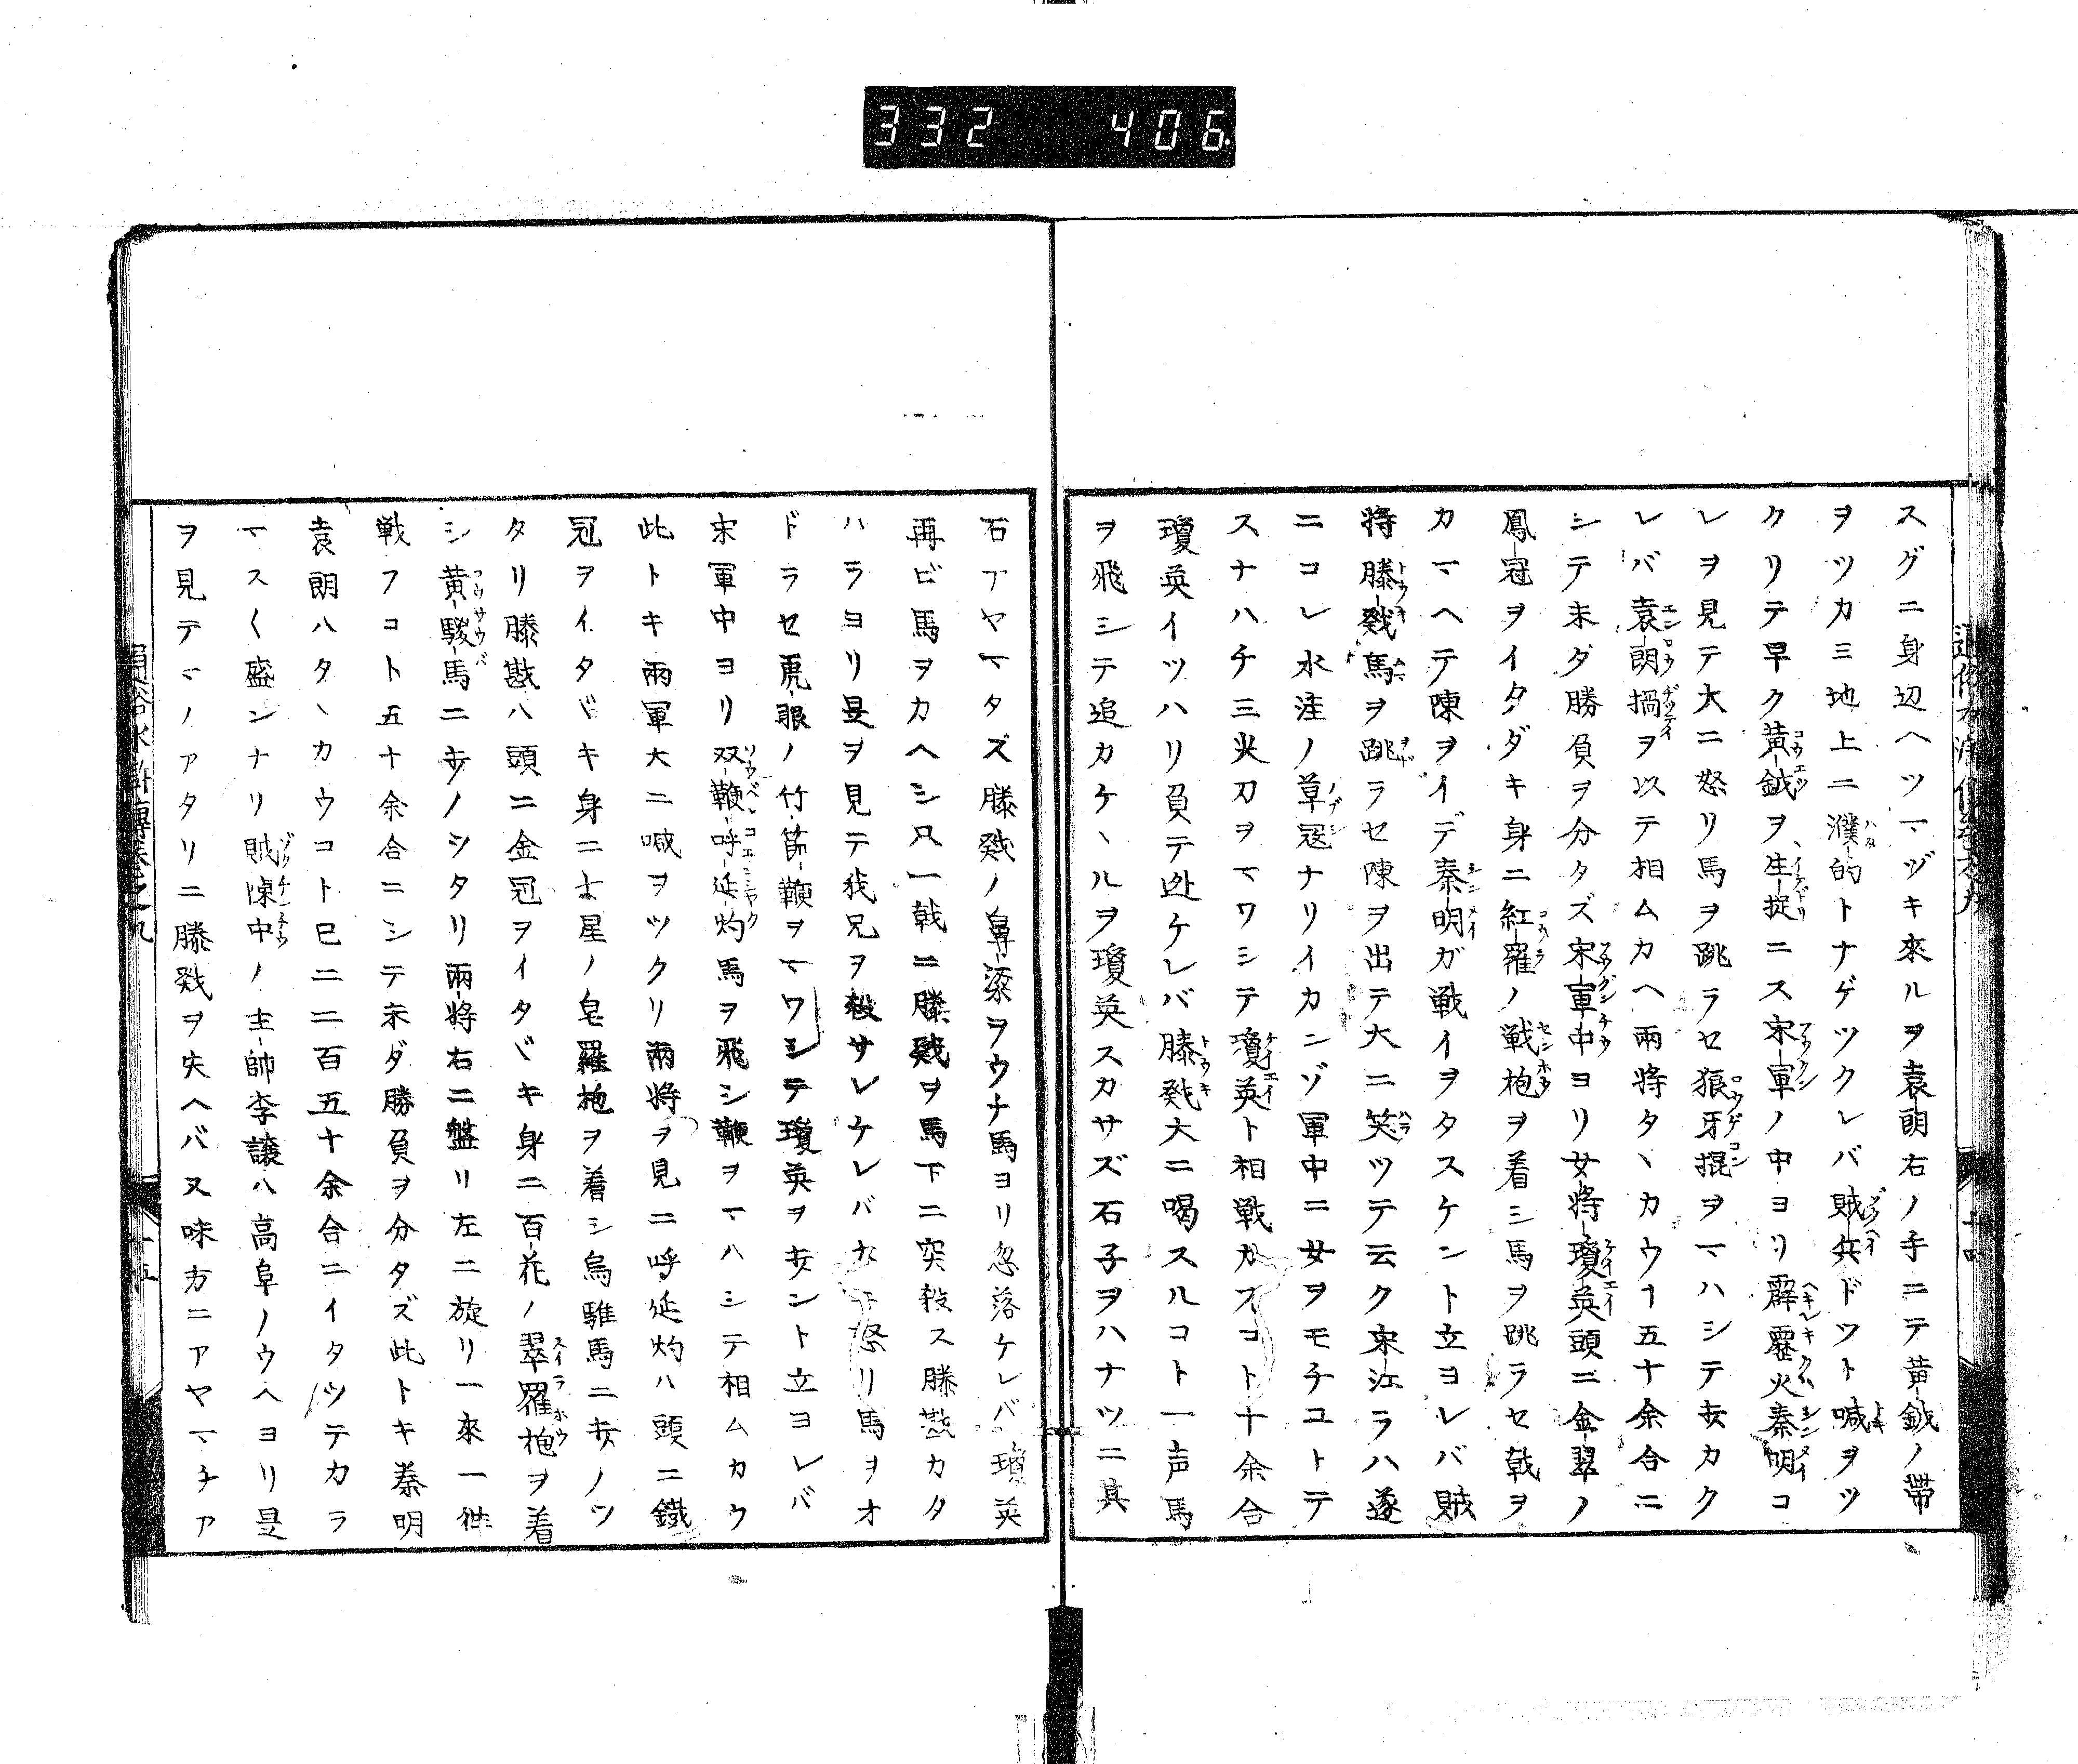 332 406
スグニ身辺ヘツマヅキ來ルヲ袁朗右ノ手ニテ黄鉞ノ帶
ヲツカミ地上ニ濮的トナゲツクレバ賊兵ドツト喊ヲツ
クリテ早ク黄鉞ヲ生捉ニス宋軍ノ中ヨリ霹靂火秦明コ
レヲ見テ大ニ怒リ馬ヲ跳ラセ狼牙掍ヲマハシテ㚑カク
レバ袁朗撾ヲ以テ相ムカヘ兩將タヽカウ丅五十余合ニ
シテ未ダ勝負ヲ分タズ宋軍中ヨリ女將瓊英頭ニ金翠ノ
鳳冠ヲイタダキ身ニ紅羅ノ戦袍ヲ着シ馬ヲ跳ラセ戟ヲ
カマヘテ陳ヲイデ秦明ガ戦イヲタスケント立ヨレバ賊
將滕戣馬ヲ跳ラセ陳ヲ出テ大ニ笑ツテ云ク宋江ラハ遂
ニコレ水洼ノ草冦ナリイカンゾ軍中ニ女ヲモチユトテ
スナハチ三尖刀ヲマワシテ瓊英ト相戦カフコト十余合
瓊英イツハリ負テ迯ケレバ滕戣大ニ喝スルコト一声馬
ヲ飛シテ追カケヽルヲ瓊英スカサズ石子ヲハナツニ其
石アヤマタズ滕戣ノ鼻梁ヲウナ馬ヨリ忽落ケレバ瓊英
再ビ馬ヲカヘシ只一戟ニ滕戣ヲ馬下ニ突殺ス滕戡カタ
ハラヨリ是ヲ見テ我兄ヲ殺サレケレバナド怒リ馬ヲオ
ドラセ虎眼ノ竹節鞭ヲマワシテ瓊英ヲ㚑ント立ヨレバ
宋軍中ヨリ双鞭呼延灼馬ヲ飛シ鞭ヲマハシテ相ムカウ
此トキ兩軍大ニ喊ヲツクリ兩將ヲ見ニ呼延灼ハ頭ニ鐵
冠ヲイタヾキ身ニ七星ノ皂羅袍ヲ着シ烏騅馬ニ㚑ノツ
タリ滕戡ハ頭ニ金冠ヲイタヾキ身ニ百花ノ翠羅袍ヲ着
シ黄駿馬ニ㚑ノシタリ兩將右ニ盤リ左ニ旋リ一來一徃
戦フコト五十余合ニシテ未ダ勝負ヲ分タズ此トキ秦明
袁朗ハタヽカウコト已ニ二百五十余合ニイタツテカラ
マス〱盛ンナリ賊陳中ノ主帥李讓ハ高阜ノウヘヨリ是
ヲ見テマノアタリニ滕戣ヲ失ヘバ又味方ニアヤマチア